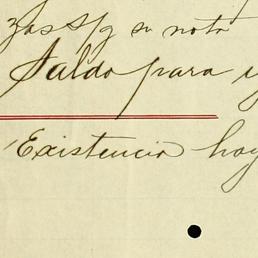 zas S/g su nota
Saldo para
Existencia hoy